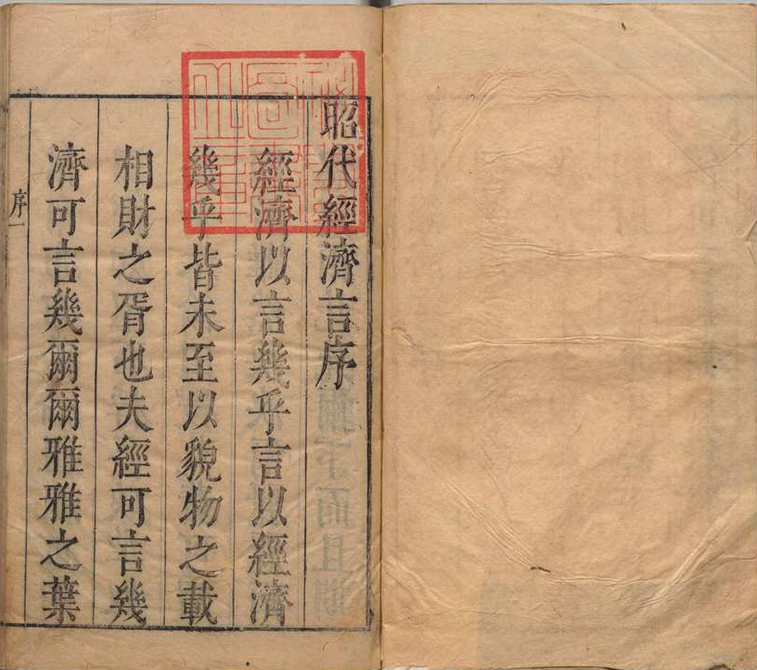 昭代經濟言序
經濟以言幾乎言以經濟
幾乎皆未至以貌物之載
相財之胥也夫經可言幾
濟可言幾爾爾雅雅之葉
序一